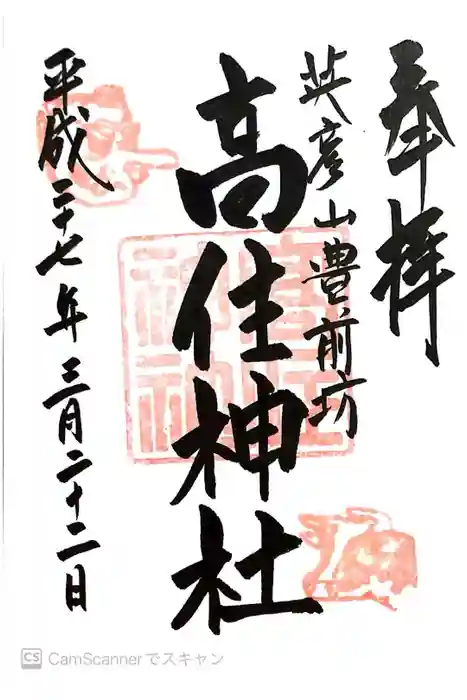 奉拝
英彦山豊前坊
高住神社
平成二十七年三月二十二日
CamScannerでスキャン